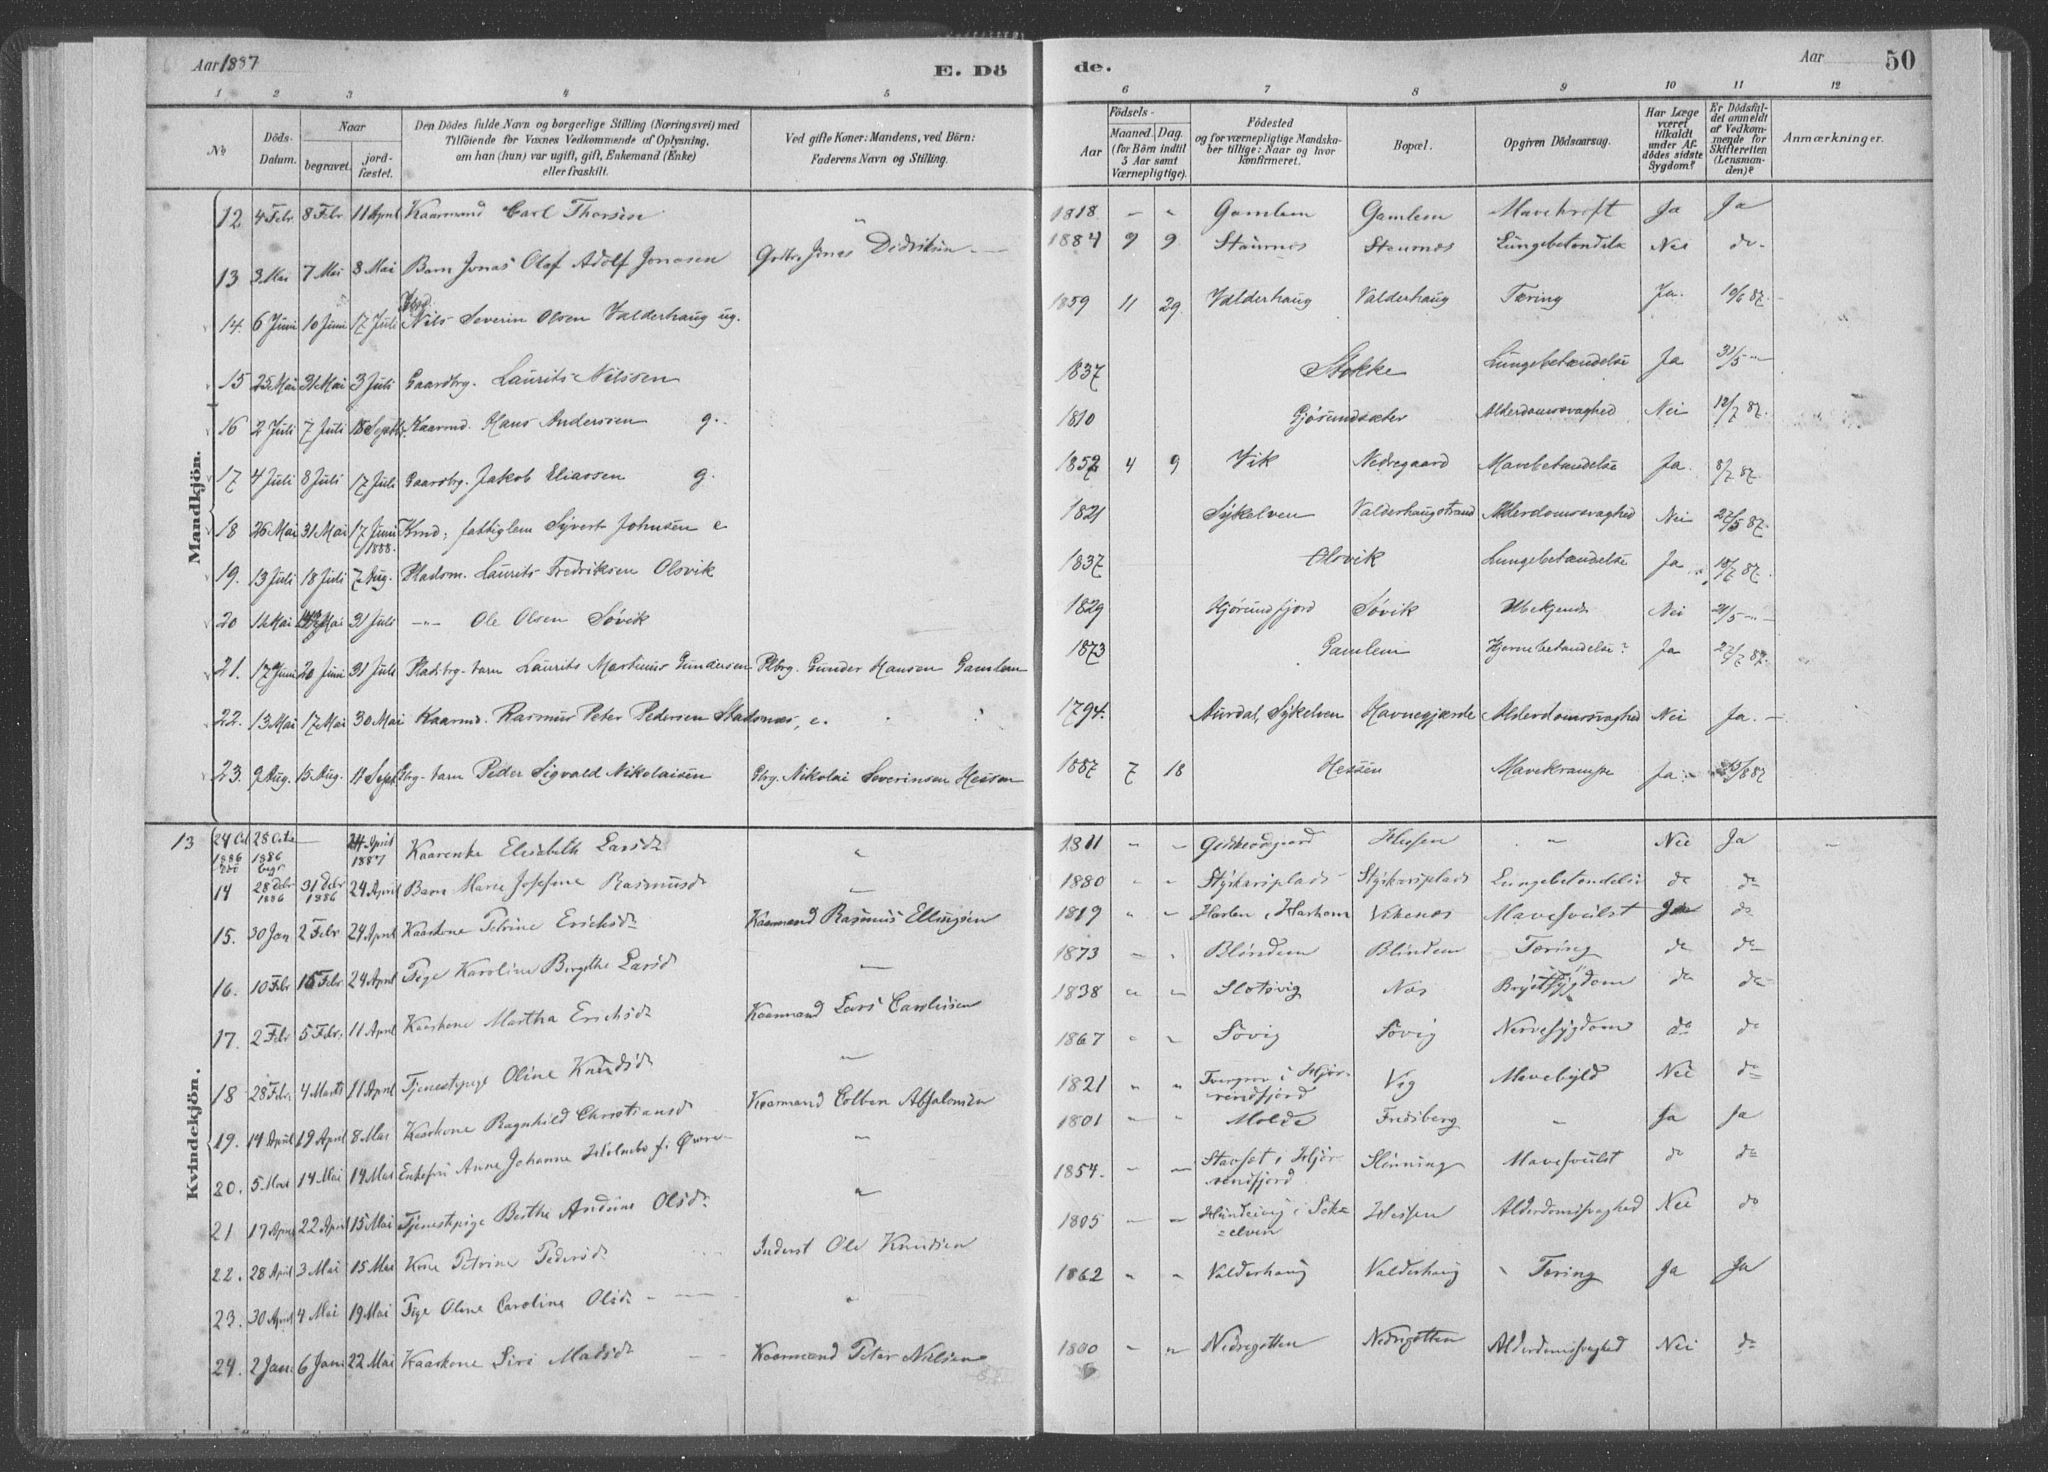 Aar 1887
E. Dö
de.
Aar
50
1 2 3 4 5 6 7 8 9 10 11 12
No
Döds-Datum.
Naar
begravet.
jord-fæstet.
Den Dödes fulde Navn og borgerlige Stilling (Næringsvei) med
Tilföiende for Voxnes Vedkommende af Oplysning,
om han (hun) var ugift, gift, Enkemand (Enke)
eller fraskilt.
Ved gifte Koner: Mandens, ved Börn:
Faderens Navn og Stilling.
Födsels-
Aar
Maaned. Dag.
(for Börn indtil
5 Aar samt
Værnepligtige).
Födested
og for værnepligtige Mandska-
ber tillige: Naar og hvor
konfirmeret.
Bopæl.
Opgiven Dödsaarsag.
Har Læge
været
tilkaldt
under Af-
dödes sidste
Sygdom?
Er Dödsfal-
det anmeldt
af Vedkom-
mende for
Skifteretten
(Lensman-
den)?
Anmærkninger.
Mandkjön.
12 4 Febr 8 Febr 11 April Kaarmand Carl Thorsen " 1818 - " Gamlem Gamlem Mavekræft Ja Ja
13 3 Mai 7 Mai 8 Mai Barn Jonas Olaf Adolf Jonasen Gadbr. Jonas Didriksen 1884 9 9 Staurnes Staurnes Lungebetændelse Nei do
14. 6 Juni 10 Juni 17 Juli Nils Severin Olsen Valderhaug ug. 1859 11 29 Valderhaug Valderhaug Tæring Ja. 10/6 87.
15 25 Mai 31 Mai 3 Juli Gaardbrg. Laurits Nilssen 1837 Stokke Lungebetændelse Ja 31/5 -"-
16 2 Juli 7 Juli 18 Septbr. Kaarmd. Hans Anderssen g. 1810 Gjøsundsæter Alderdomssvaghed Nei 12/7 87.
17 4 Juli 8 Juli 17 Juli Gaardbrg. Jakob Eliassen g. 1852 4 9 Vik Nedregaard Mavebetændelse Ja. 8/7 87.
18 26 Mai 31 Mai 17 Juni 1888. Kmd, fattiglem Syvert Johnsen e 1821 Sykelven Valderhaugstrand Alderdomssvaghed Nei 27/5 87.
19. 13 Juli 18 Juli 7 Aug. Pladsm. Laurits Fredriksen Olsvik 1837 Olsvik Lungebetændelse Ja 18/7 87.
20 Mai 31 Juli -"- Ole Olsen Søvik 1829 Hjørundfjord Søvik Ubekjendt Nei 21/5 -"-
21. 17 Juni 20 Juni 31 Juli Pladsbrg. barn Laurits Martinus Gundersen Plbrg. Gunder Hansen Gamlem 1873 Gamlem Hjernebetændelse? Ja 27/7 87.
22. 13 Mai 17 Mai 30 Mai Kaarmd. Rasmus Peter Pedersen Stadsnæs, e. 1794. Aurdal, Sykelven Havnegjærde Alderdomssvaghed Nei Ja. -
23. 9 Aug. 15 Aug. 11 Sept. Gbrg. barn Peder Sigvald Nikolaisen Gbrg. Nikolai Severinsen Hessen 1887 7 18 Hessen Mavekrampe Ja
Kvindekjön.
13 24 Oct 1886 28 Octr 1886 24 April 1887 Kaarenke Elisabeth Larsdr " 1811 " " Hessen " Nei Ja
14 28 Debr 1886 31 Debr 1886 24 April Barn Marie Josefine Rasmusdr - 1880 " " Styskarsplads Lungebetændelse do do
15. 30 Jan 2 Febr 24 April Kaarkone Petrine Ericksdr Kaarmand Rasmus Ellingsen 1819 " " Harham Mavesvulst Ja do
16. 10 Febr 15 Febr 24 April Pige Karoline Bergithe Larsd - 1873 - " Blindem Blindem Tæring do do
17. 2 Febr 5 Febr. 11 April Kaarkone Martha Ericksdr Kaarmand Lars Carolussen 1838 " - Slotsvig Næs Brystsygdom do do
18 28 Febr. 4 Marts 11 April Tjenestepige Oline Knudsdr - 1867 " " Søvig Søvig Nervesygdom do do
19. 14 April 19 April 8 Mai Kaarkone Ragnhild Christiansd Kaarmand Colben Absalonsen 1821 " " i Hjør-
rendfjord Vig Mavebyld Nei do
20. 5 Mai 14 Mai 14 Mai Enkefru Anne Johanne Holmebo f. Øwre " 1801 - - Molde Fredsberg - Ja Ja
21 17 April 22 April 15 Mai Tjenestepige Berthe Andrine Olsdr " 1854. - - Stavset i Hjør-
rendfjord Slinning Mavesvulst do do
22. 28 April 3 Mai 15 Mai Kone Petrine Pedersdr Inderst Ole Knudsen 1805 - - Hundeivig i Søk-
=elven Hessen Alderdomssvaghed Nei do
23. 30 April 4 Mai 19 Mai Pige Oline Caroline Olsdr " 1862 " " Valderhaug Valderhaug Tæring Ja Ja
24. 2 Jan. 6 Jan. 22 Mai Kaarkone Siri Madsdr Kaarmand Peter Nielsen 1800 " " Nedregotten Nedregotten Alderdomssvaghed Nei do